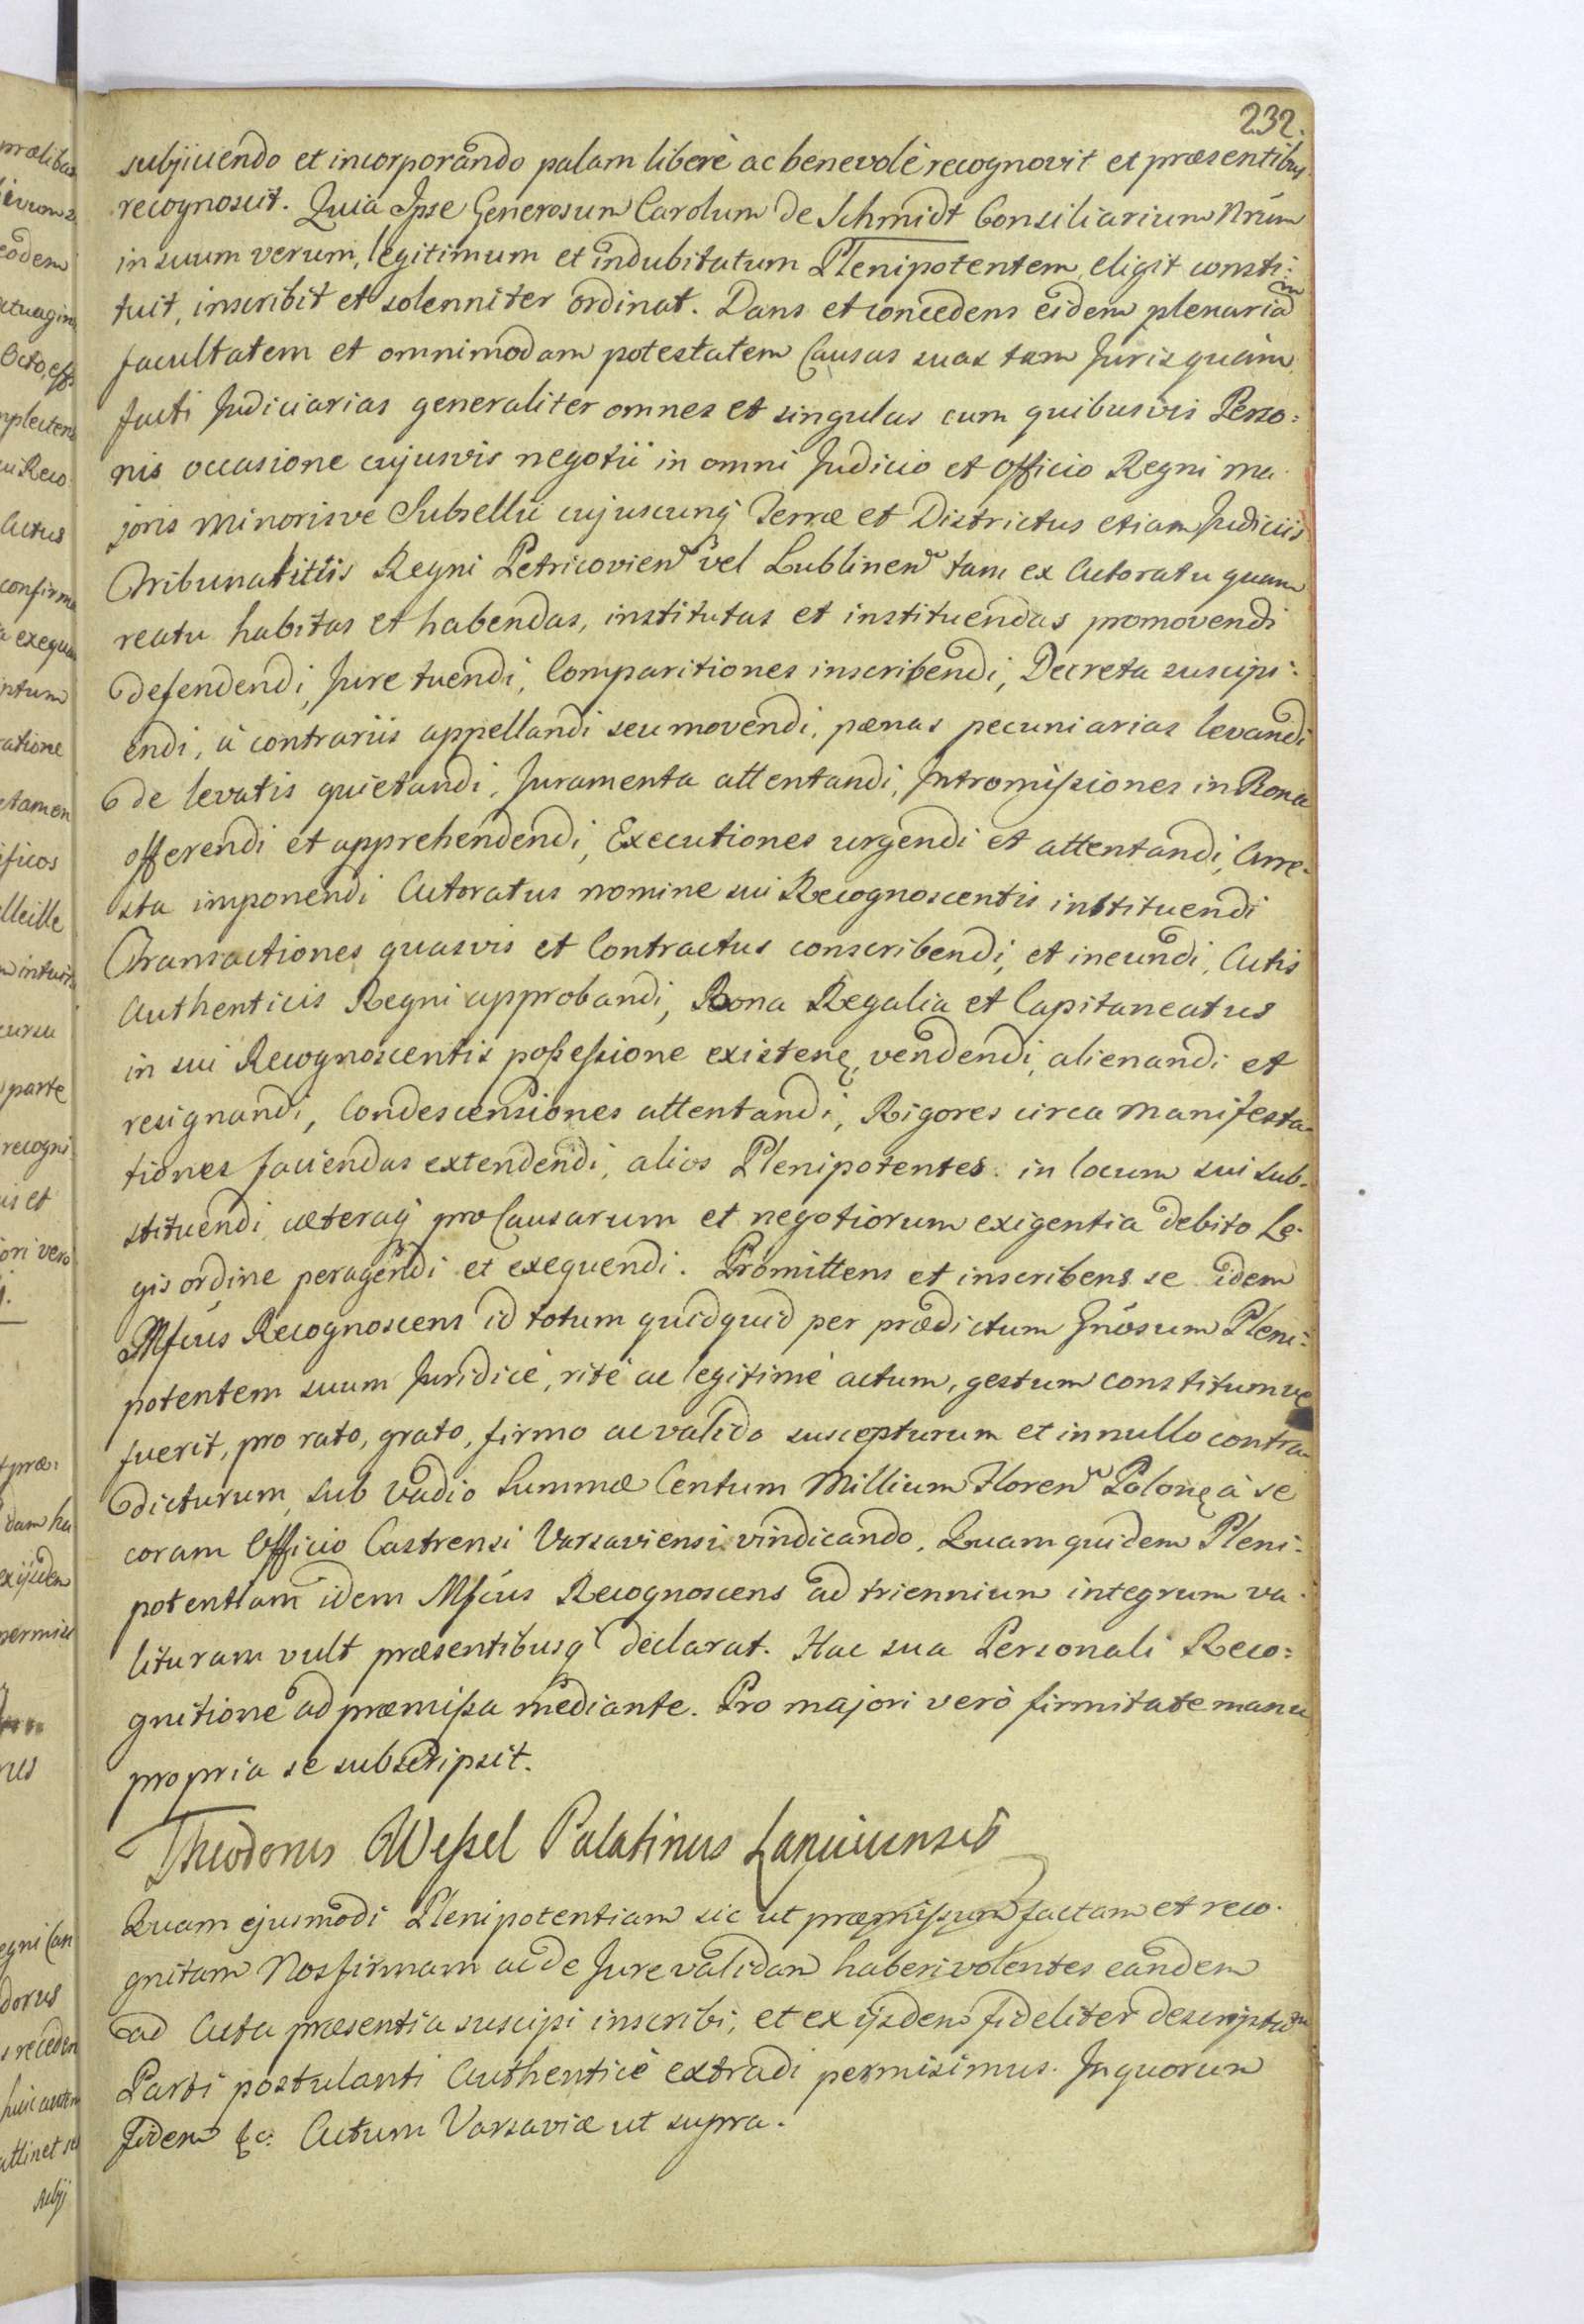 232.
subjiciendo et incorporando palam liberè ac benevolè recognovit et præsentibus
recognoscit. Quia Ipse Generosum Carolum de Schmidt Consiliarium Nrum
in suum verum, legitimum et indubitatum Plenipotentem, eligit consti:
tuit, inscribit et solenniter ordinat. Dans et concedens eidem plenariam
facultatem et omnimodam potestatem Causas suas tam Juris quàm
facti Judiciarias generaliter omnes et singulas cum quibusvis Perso:
nis occasione cujusvis negotii in omni Judicio et Officio Regni ma
joris minorisve Subsellii cujuscunq Terræ et Districtus etiam Judiciis
Tribunalitiis Regni Petricovien vel Lublinen tam ex Actoratu quam
reatu habitas et habendas, institutas et instituendas promovendi
defendendi, Jure tuendi, Comparitiones inscribendi, Decreta suscipi:
endi, à contrariis appellandi seu movendi, pænas pecuniarias levandi
de levatis quietandi, Juramenta attentandi, Intromissiones in Bona
offerendi et apprehendendi, Executiones urgendi et attentandi, Arre-
sta imponendi Actoratus nomine sui Recognoscentis instituendi
Transactiones quasvis et Contractus conscribendi, et ineundi, Actis
Authenticis Regni approbandi, Bona Regalia et Capitaneatus
in sui Recognoscentis possessione existen, vendendi, alienandi et
resignandi, Condescensiones attentandi, Rigores circa manifesta
tiones faciendas extendendi, alios Plenipotentes in locum sui sub-
stituendi cæteraq pro Causarum et negotiorum exigentia debito Le-
gis ordine peragendi et exequendi. Promittens et inscribens se idem
Mfcus Recognoscens id totum quidquid per prædictum Gnosum Pleni-
potentem suum Juridicè, ritè ac legitimè actum, gestum constitumve
fuerit, pro rato, grato, firmo ac valido suscepturum et in nullo contra
dicturum, sub vadio Summæ Centum Millium Floren Polon à se
coram Officio Castrensi Varsaviensi vindicando. Quam quidem Pleni-
potentiam idem Mfcus Recognoscens ad triennium integrum va-
lituram vult præsentibusq declarat. Hac sua Personali Reco:
gnitione ad præmissa mediante. Pro majori verò firmitate manu
propria se subscripsit.
Theodorus Wessel Palatinus Lanciciensis
Quam ejusmodi Plenipotentiam sic ut præmissum factam et reco-
gnitam Nos firmam ac de Jure validam haberi volentes eandem
ad Acta præsentia suscipi inscribi, et ex ijsdem fideliter descriptam
Parti postulanti Authenticè extradi permisimus. In quorum
Fidem &c: Actum Varsaviæ ut supra.